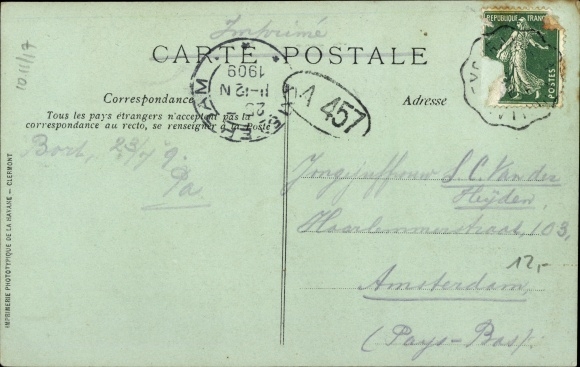 10 11/17
Imprimé
CARTE POSTALE
REPUBLIQUE FRANÇ
POSTES
1909
11-12 N
A 457
Correspondance
Adresse
Tous les pays étrangers n'acceptant pas la
correspondance au recto, se renseigner à la Poste
Bort, 23/7 9.
Pa
Jongejuffrouw S. C. Van der
Heÿden,
Haarlemmerstraat, 103,
12,-
Amsterdam,
(Pays-Bas).
IMPRIMERIE PHOTOTYPIQUE DE LA HAVANE — CLERMONT